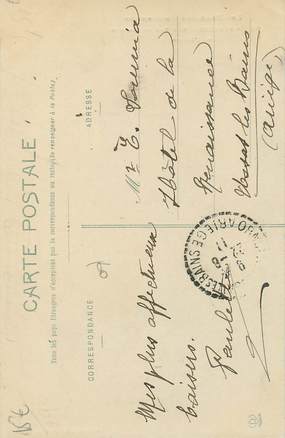 CARTE POSTALE
Tous les pays étrangers n'acceptent pas la correspondance au recto (se renseigner à la Poste)
CORRESPONDANCE
ADRESSE
Mes plus affectueux
baisers.
Paulette
Mr E.
Hôtel de la
Renaissance
Ussat les Bains
(Ariège)
15€